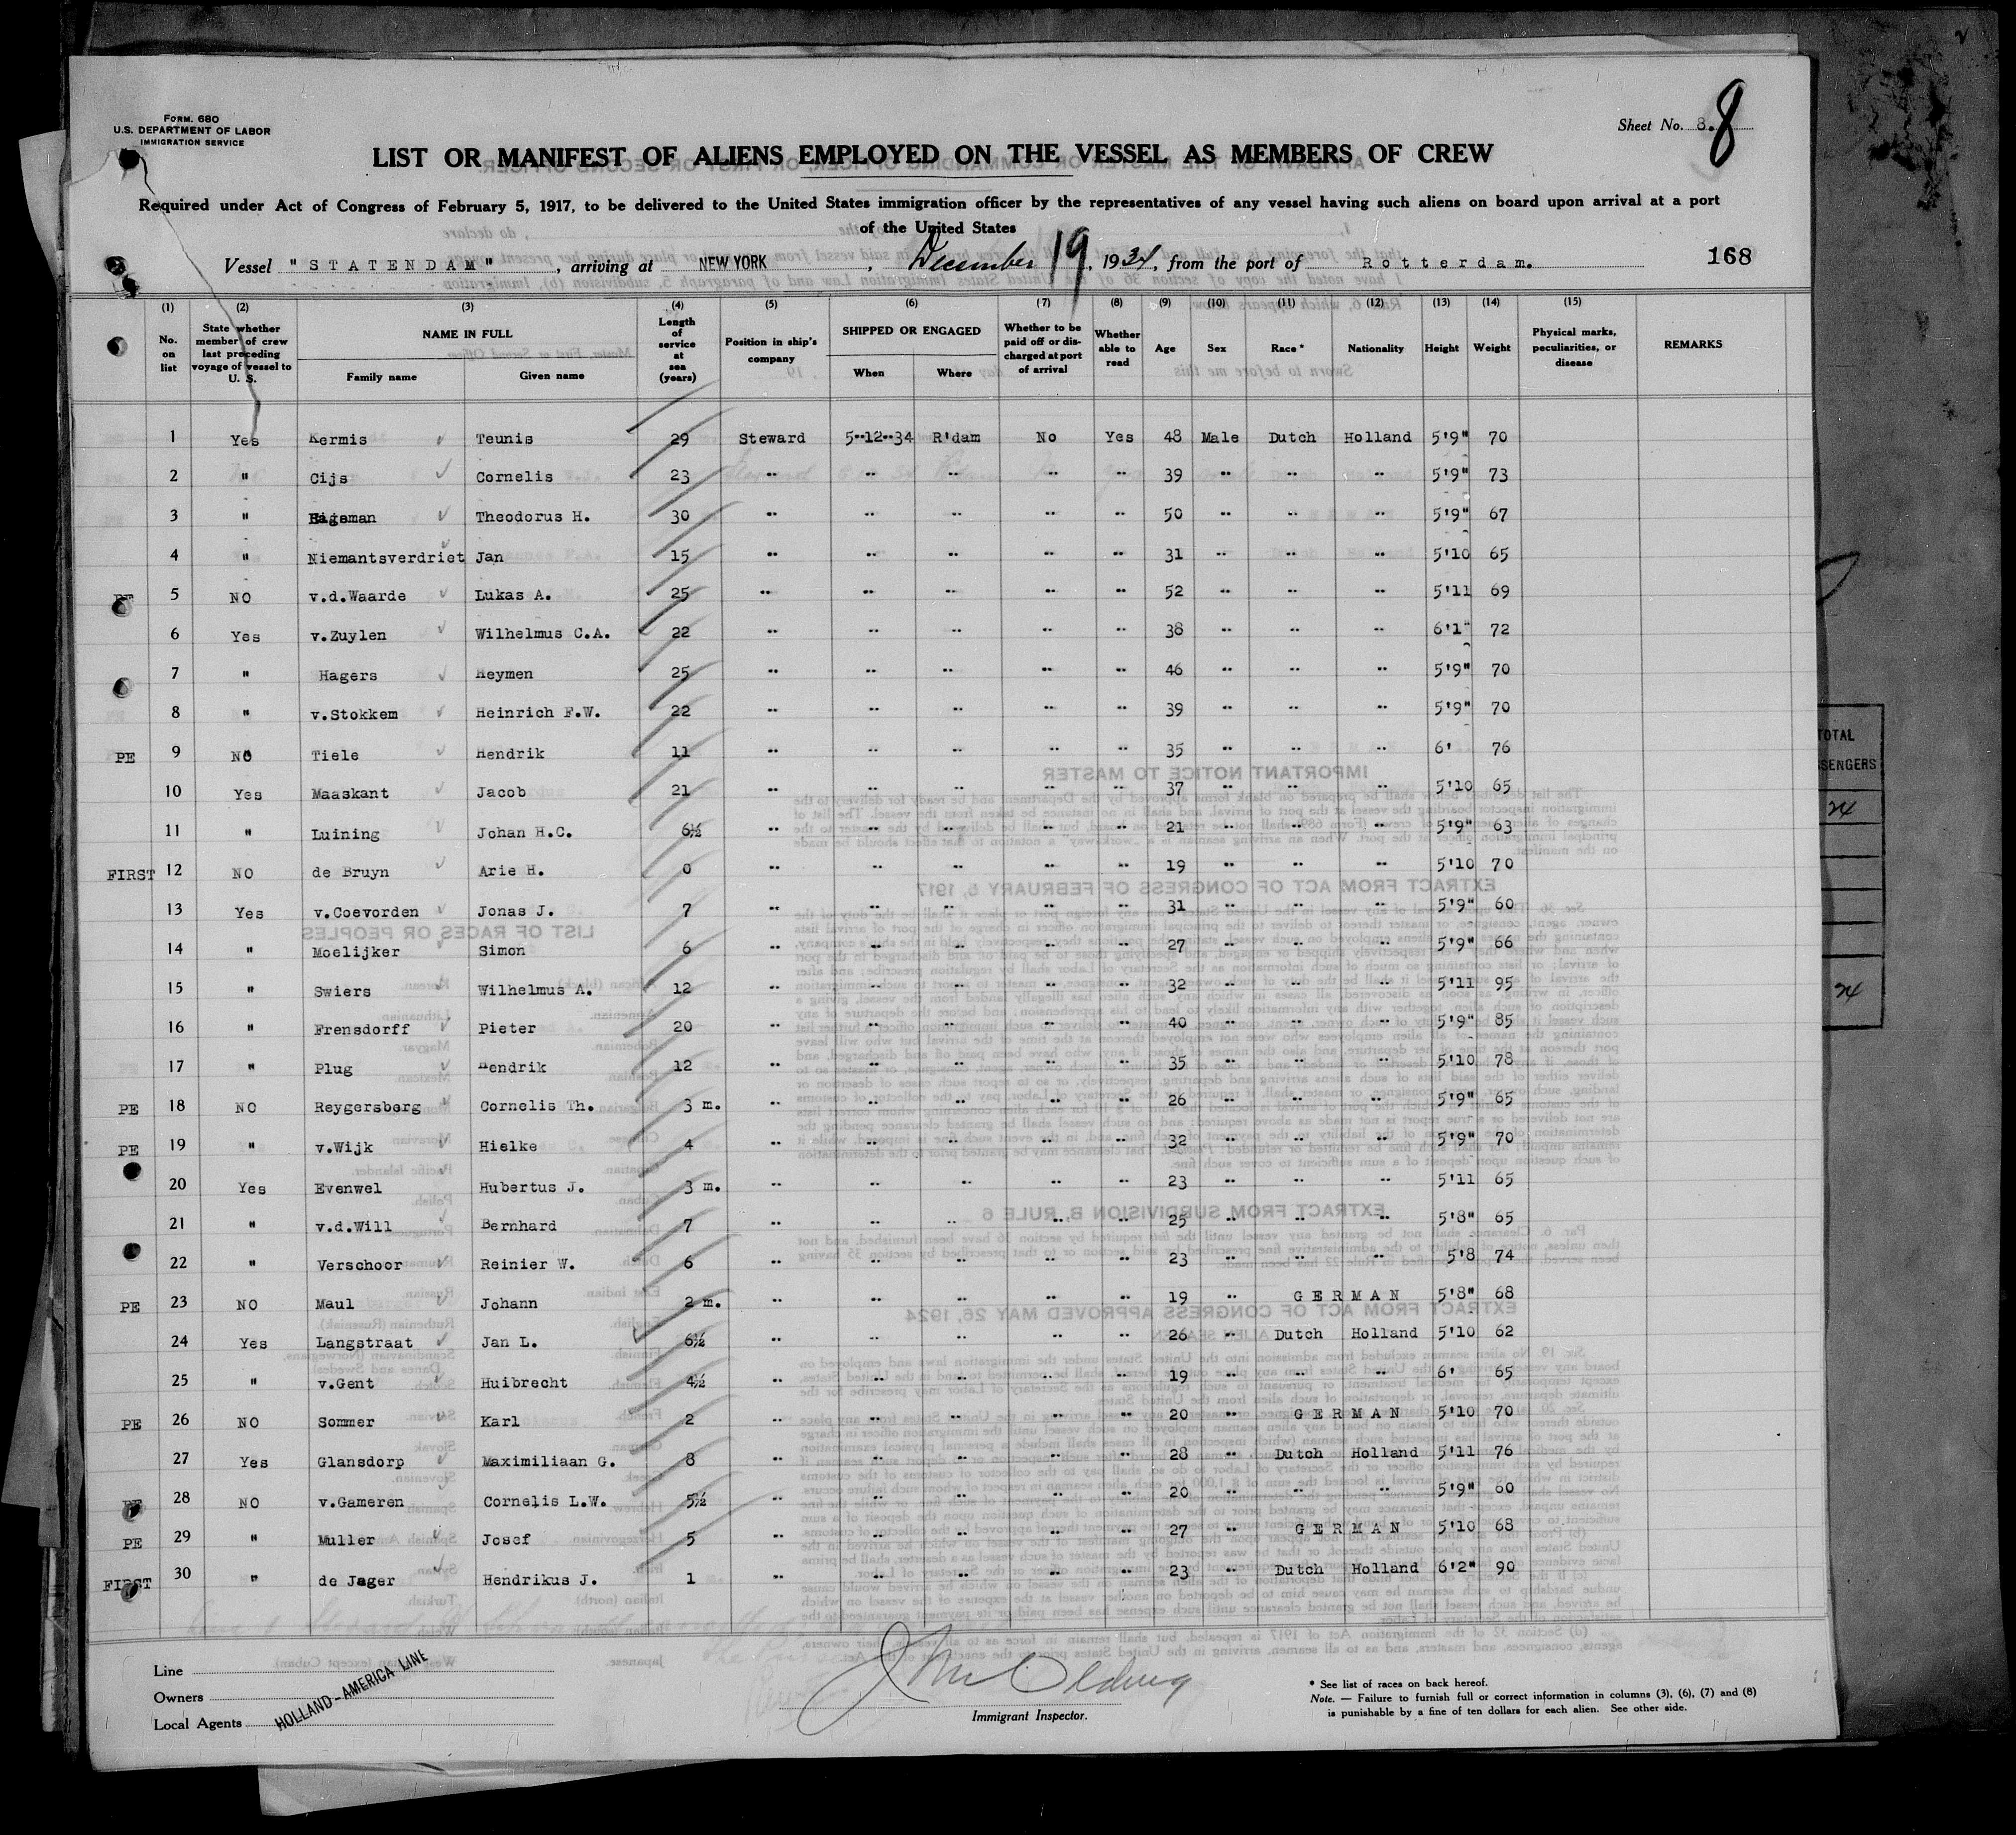 FORM. 680
U.S. DEPARTMENT OF LABOR
IMMIGRATION SERVICE
Sheet No. 8. 8
LIST OR MANIFEST OF ALIENS EMPLOYED ON THE VESSEL AS MEMBERS OF CREW
Required under Act of Congress of February 5, 1917, to be delivered to the United States immigration officer by the representatives of any vessel having such aliens on board upon arrival at a port
of the United States
Vessel "STATENDAM", arriving at NEW YORK, December 19, 1934, from the port of Rotterdam. 168
(1) (2) (3) (4) (5) (6) (7) (8) (9) (10) (11) (12) (13) (14) (15)
No. on list State whether member of crew last preceding voyage of vessel to U. S. NAME IN FULL Family name Given name Length of service at sea (years) Position in ship's company SHIPPED OR ENGAGED When Where Whether to be paid off or discharged at port of arrival Whether able to read Age Sex Race* Nationality Height Weight Physical marks, peculiarities, or disease REMARKS
1 Yes Kermis Teunis 29 Steward 5--12--34 R'dam No Yes 48 Male Dutch Holland 5'9" 70
2 " Cijs Cornelis 23 -- -- -- -- -- 39 -- -- -- 5'9" 73
3 " Theodorus H. 30 -- -- -- -- -- 50 -- -- -- 5'9" 67
4 " Niemantsverdriet Jan 15 -- -- -- -- -- 31 -- -- -- 5'10 65
PE 5 NO v.d.Waarde Lukas A. 25 -- -- -- -- -- 52 -- -- -- 5'11 69
6 Yes v.Zuylen Wilhelmus C.A. 22 -- -- -- -- -- 38 -- -- -- 6'1" 72
7 " Hagers Heymen 25 -- -- -- -- -- 46 -- -- -- 5'9" 70
8 " v.Stokkem Heinrich F.W. 22 -- -- -- -- -- 39 -- -- -- 5'9" 70
PE 9 NO Tiele Hendrik 11 -- -- -- -- -- 35 -- -- -- 6' 76
10 Yes Maaskant Jacob 21 -- -- -- -- -- 37 -- -- -- 5'10 65
11 " Luining Johan H.C. 6½ -- -- -- -- -- 21 -- -- -- 5'9" 63
FIRST 12 NO de Bruyn Arie H. 0 -- -- -- -- -- 19 -- -- -- 5'10 70
13 Yes v.Coevorden Jonas J. 7 -- -- -- -- -- 31 -- -- -- 5'9" 60
14 " Moelijker Simon 6 -- -- -- -- -- 27 -- -- -- 5'9" 66
15 " Swiers Wilhelmus A. 12 -- -- -- -- -- 32 -- -- -- 5'11 95
16 " Frensdorff Pieter 20 -- -- -- -- -- 40 -- -- -- 5'9" 85
17 " Plug Hendrik 12 -- -- -- -- -- 35 -- -- -- 5'10 78
PE 18 NO Reygersberg Cornelis Th. 3 m. -- -- -- -- -- 26 -- -- -- 5'9" 65
PE 19 " v.Wijk Hielke 4 -- -- -- -- -- 32 -- -- -- 5'9" 70
20 Yes Evenwel Hubertus J. 3 m. -- -- -- -- -- 23 -- -- -- 5'11 65
21 " v.d.Will Bernhard 7 -- -- -- -- -- 25 -- -- -- 5'8" 65
22 " Verschoor Reinier W. 6 -- -- -- -- -- 23 -- -- -- 5'8 74
PE 23 NO Maul Johann 2 m. -- -- -- -- -- 19 -- GERMAN 5'8" 68
24 Yes Langstraat Jan L. 6½ -- -- -- -- -- 26 -- Dutch Holland 5'10 62
25 " v.Gent Huibrecht 4½ -- -- -- -- -- 19 -- -- -- 6' 65
PE 26 NO Sommer Karl 2 -- -- -- -- -- 20 -- GERMAN 5'10 70
27 Yes Glansdorp Maximiliaan G. 8 -- -- -- -- -- 28 -- Dutch Holland 5'11 76
PE 28 NO v.Gameren Cornelis L.W. 5½ -- -- -- -- -- 20 -- -- -- 5'9" 60
PE 29 " Muller Josef 5 -- -- -- -- -- 27 -- GERMAN 5'10 68
FIRST 30 " de Jager Hendrikus J. 1 -- -- -- -- -- 23 -- Dutch Holland 6'2" 90
Line
Owners
Local Agents
HOLLAND-AMERICA LINE
Immigrant Inspector.
* See list of races on back hereof.
Note. — Failure to furnish full or correct information in columns (3), (6), (7) and (8)
is punishable by a fine of ten dollars for each alien. See other side.
TOTAL
SENGERS
24
24